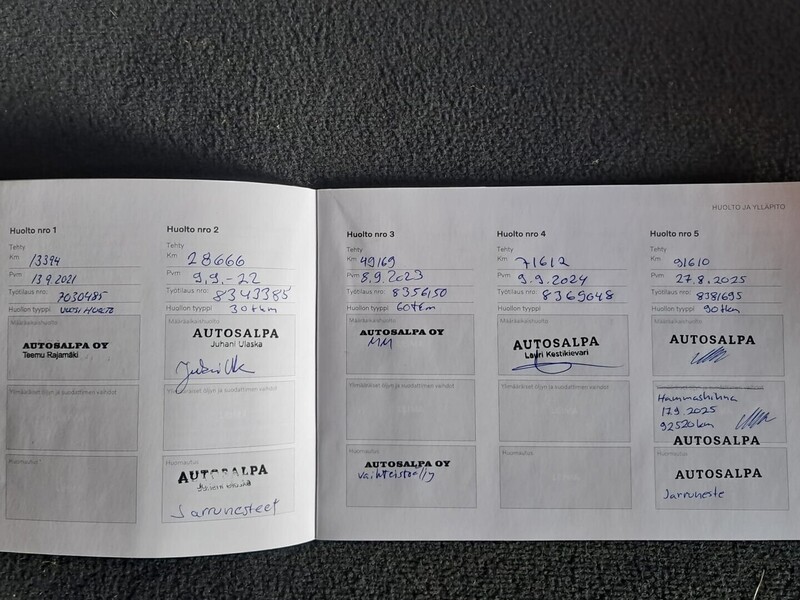 HUOLTO JA YLLÄPITO
Huolto nro 1
Tehty
Km 13394
Pvm 13.9.2021
Työtilaus nro: 7030485
Huollon tyyppi VUOSI HUOLTO
Määräaikaishuolto
AUTOSALPA OY
Teemu Rajamäki
Ylimääräiset öljyn ja suodattimen vaihdot
Huomautus
Huolto nro 2
Tehty
Km 28666
Pvm 9.9.-22
Työtilaus nro: 8343385
Huollon tyyppi 30tkm
Määräaikaishuolto
AUTOSALPA
Juhani Ulaska
Ylimääräiset öljyn ja suodattimen vaihdot
Huomautus
AUTOSALPA
Jarrunesteet
Huolto nro 3
Tehty
Km 49169
Pvm 8.9.2023
Työtilaus nro: 8356150
Huollon tyyppi 60tkm
Määräaikaishuolto
AUTOSALPA OY
Ylimääräiset öljyn ja suodattimen vaihdot
Huomautus
AUTOSALPA OY
Vaihteistoöljy
Huolto nro 4
Tehty
Km 71612
Pvm 9.9.2024
Työtilaus nro: 8369048
Huollon tyyppi
Määräaikaishuolto
AUTOSALPA
Lauri Kestikievari
Ylimääräiset öljyn ja suodattimen vaihdot
Huomautus
Huolto nro 5
Tehty
Km 91610
Pvm 27.8.2025
Työtilaus nro: 8381695
Huollon tyyppi 90tkm
Määräaikaishuolto
AUTOSALPA
Hammashihna
17.9.2025
92520km
AUTOSALPA
Huomautus
AUTOSALPA
Jarruneste